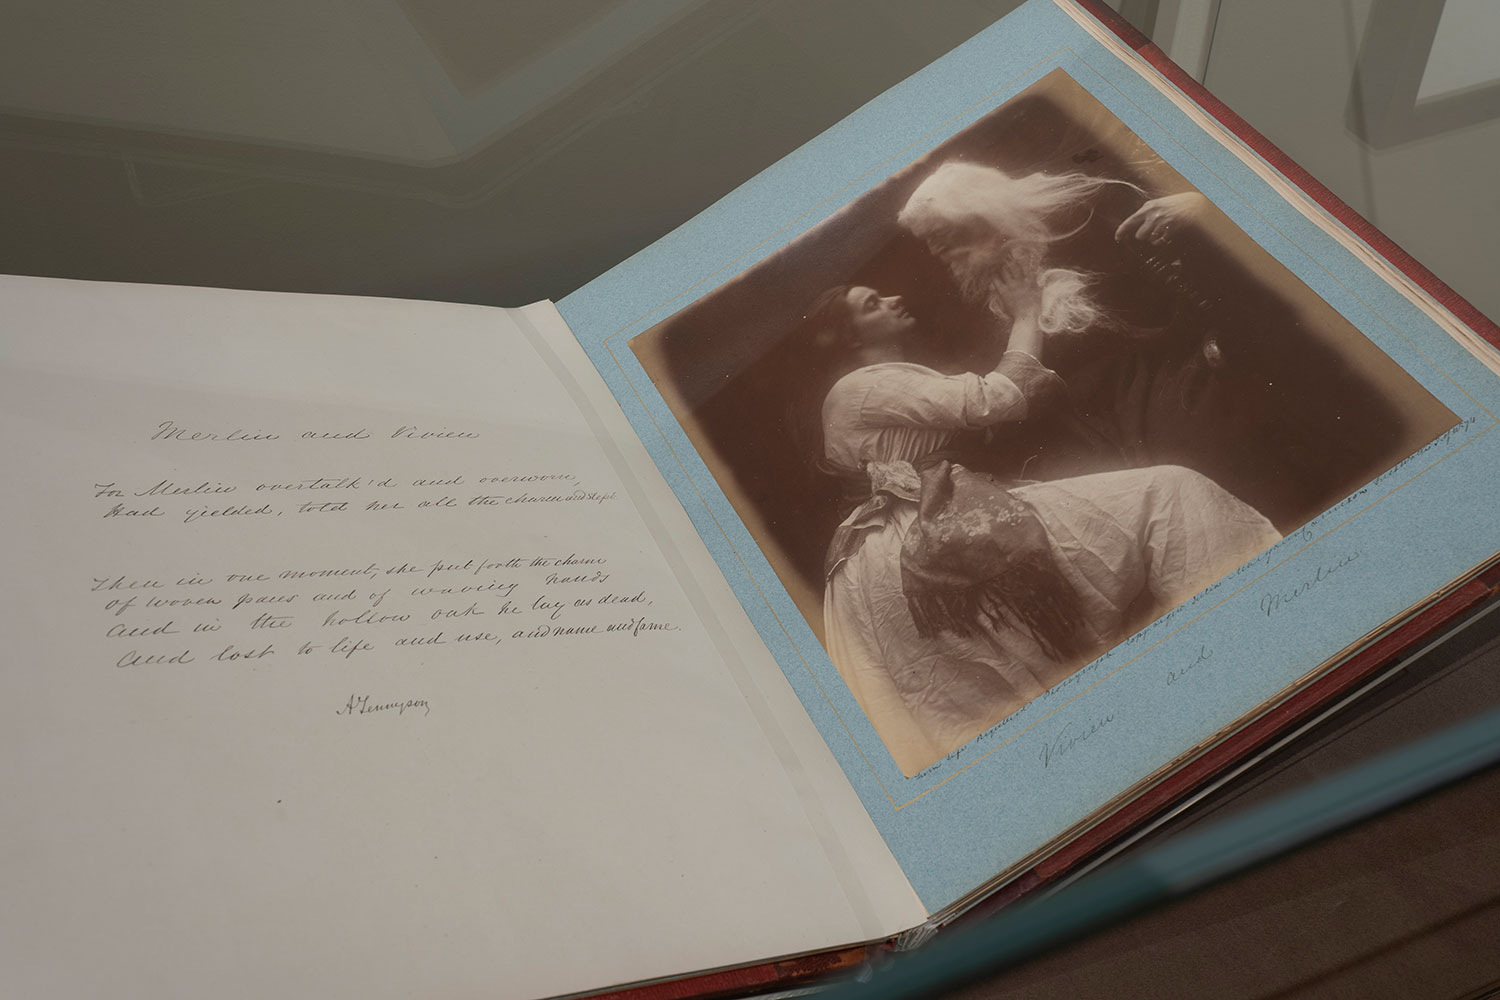 Merlin and Vivien
For Merlin overtalk'd and overworn,
Had yielded, told her all the charm and slept.
Then in one moment, she put forth the charm
of woven paces and of waving hands
And in the hollow oak he lay as dead,
And lost to life and use, and name and fame.
A Tennyson
From Life Registered Photograph Copy right Julia Margaret Cameron
Vivien and Merlin